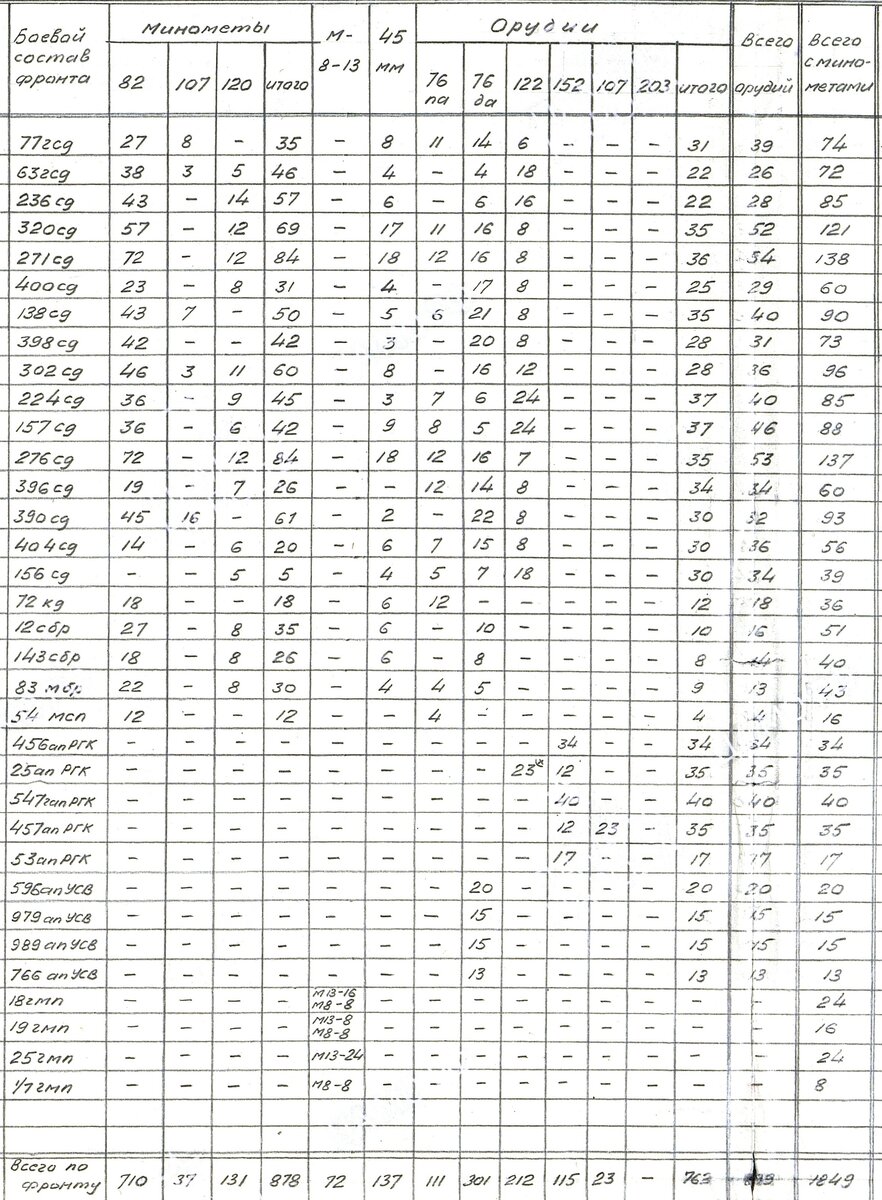 Боевой состав фронта Минометы М-8-13 45 мм Орудии Всего орудий Всего с минометами
82 107 120 итого 76 па 76 да 122 152 107 203 итого
77гсд 27 8 - 35 - 8 11 14 6 - - - 31 39 74
63гсд 38 3 5 46 - 4 - 4 18 - - - 22 26 72
236сд 43 - 14 57 - 6 - 6 16 - - - 22 28 85
320сд 57 - 12 69 - 17 11 16 8 - - - 35 52 121
271сд 72 - 12 84 - 18 12 16 8 - - - 36 54 138
400сд 23 - 8 31 - 4 - 17 8 - - - 25 29 60
138сд 43 7 - 50 - 5 6 21 8 - - - 35 40 90
398сд 42 - - 42 - 3 - 20 8 - - - 28 31 73
302сд 46 3 11 60 - 8 - 16 12 - - - 28 36 96
224сд 36 - 9 45 - 3 7 6 24 - - - 37 40 85
157сд 36 - 6 42 - 9 8 5 24 - - - 37 46 88
276сд 72 - 12 84 - 18 12 16 7 - - - 35 53 137
396сд 19 - 7 26 - - 12 14 8 - - - 34 34 60
390сд 45 16 - 61 - 2 - 22 8 - - - 30 32 93
404сд 14 - 6 20 - 6 7 15 8 - - - 30 36 56
156сд - - 5 5 - 4 5 7 18 - - - 30 34 39
72кд 18 - - 18 - 6 12 - - - - - 12 18 36
12сбр 27 - 8 35 - 6 - 10 - - - - 10 16 51
143сбр 18 - 8 26 - 6 - 8 - - - - 8 14 40
83мбр 22 - 8 30 - 4 4 5 - - - - 9 13 43
54 мсп 12 - - 12 - - 4 - - - - - 4 4 16
456ап РГК - - - - - - - - - 34 - - 34 34 34
25ап РГК - - - - - - - - 23 12 - - 35 35 35
547гап РГК - - - - - - - - - 40 - - 40 40 40
457ап РГК - - - - - - - - - 12 23 - 35 35 35
53ап РГК - - - - - - - - - 17 - - 17 17 17
596ап УСВ - - - - - - - 20 - - - - 20 20 20
979ап УСВ - - - - - - - 15 - - - - 15 15 15
989ап УСВ - - - - - - - 15 - - - - 15 15 15
766ап УСВ - - - - - - - 13 - - - - 13 13 13
18гмп - - - - М13-16 М8-8 - - - - - - - - - 24
19гмп - - - - М13-8 М8-8 - - - - - - - - - 16
25гмп - - - - М13-24 - - - - - - - - - 24
1/7гмп - - - - М8-8 - - - - - - - - - 8
Всего по фронту 710 37 131 878 72 137 111 301 212 115 23 - 763 1849